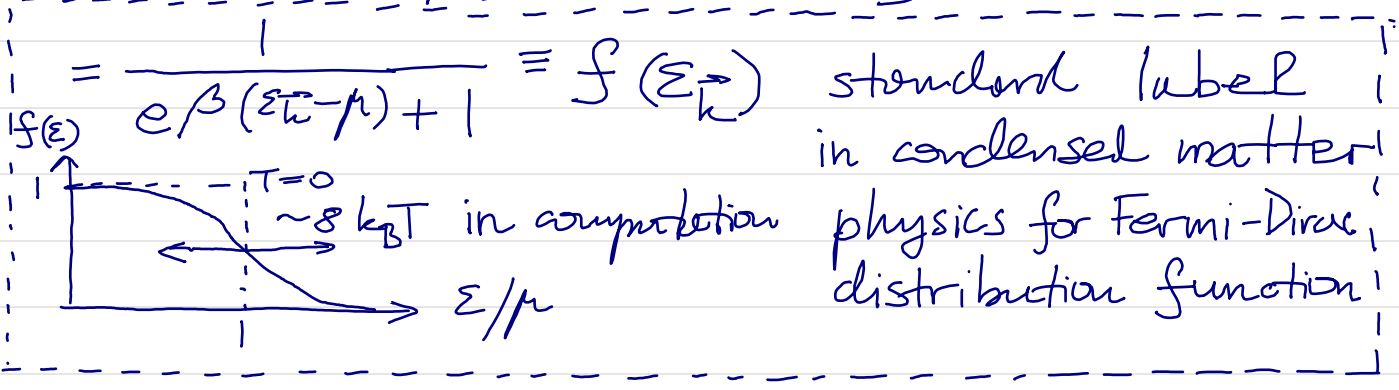 = 1 / (e^β(ε_k⃗ - μ) + 1) ≡ f(ε_k⃗) standard label
in condensed matter
physics for Fermi-Dirac
distribution function
f(ε)
1
T=0
~8 k_BT in computation
ε/μ
1